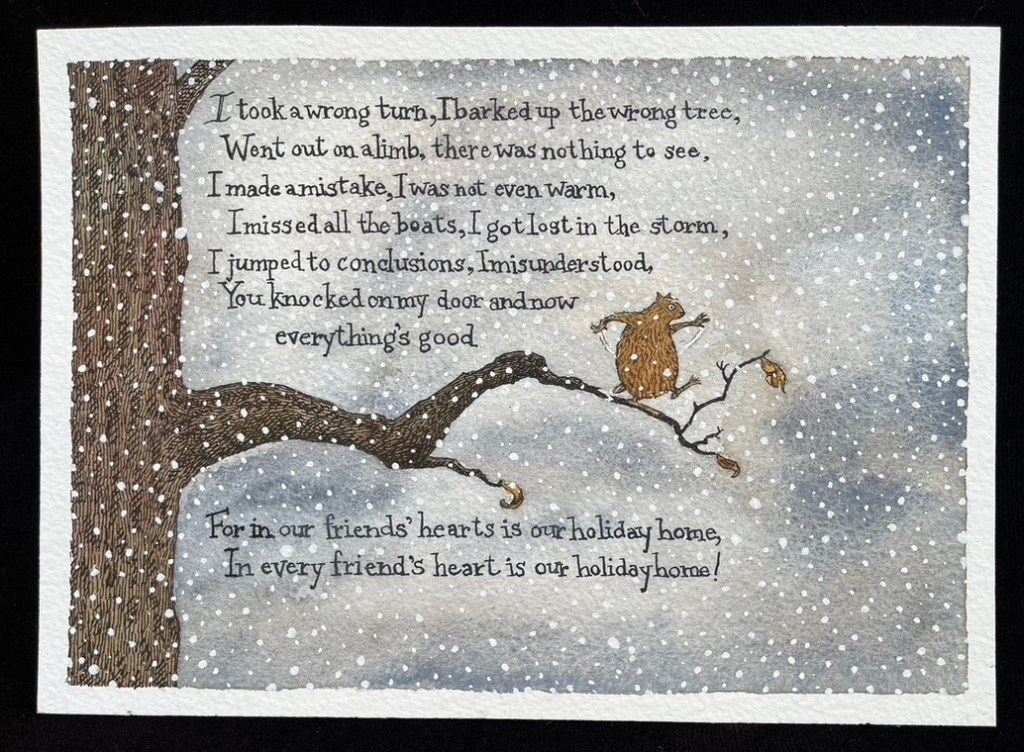 I took a wrong turn, I barked up the wrong tree,
Went out on a limb, there was nothing to see,
I made a mistake, I was not even warm,
I missed all the boats, I got lost in the storm,
I jumped to conclusions, I misunderstood,
You knocked on my door and now
everything's good
For in our friends' hearts is our holiday home,
In every friend's heart is our holiday home!